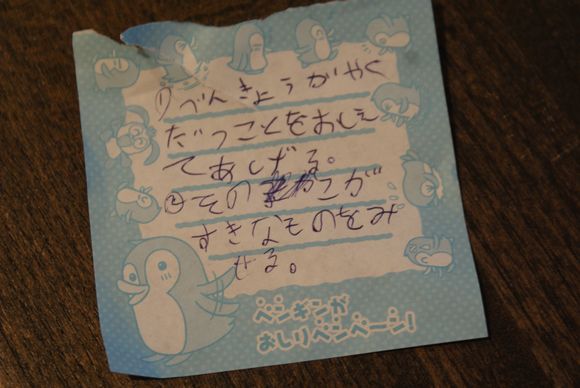 ①べんきょうがやく
だつことをおしえ
てあげる。
②そのかこが
すきなものをみ
せる。
ペンギンが
おしりペンペーン!